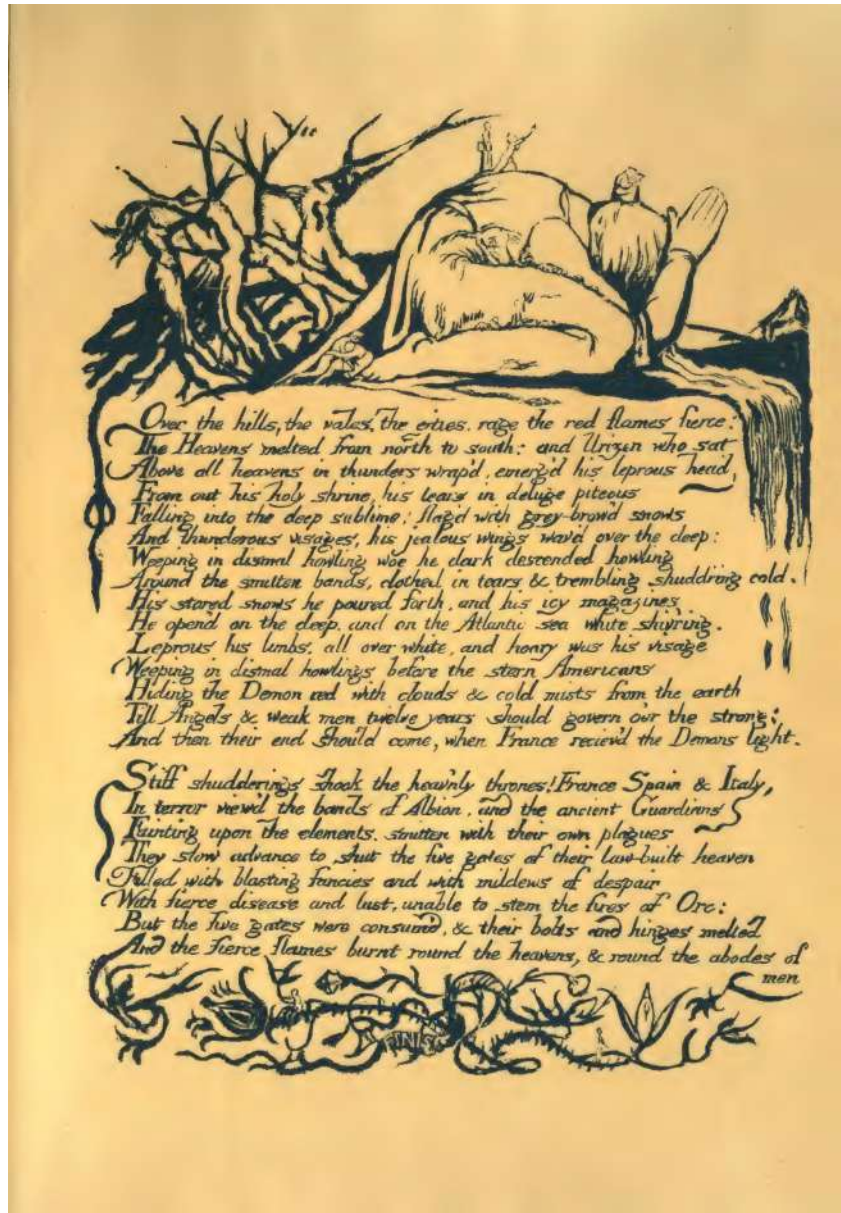 Over the hills, the vales, the cities, rage the red flames fierce:
The Heavens melted from north to south: and Urizen who sat
Above all heavens in thunders wrap'd, emerg'd his leprous head,
From out his holy shrine, his tears in deluge piteous
Falling into the deep sublime: flag'd with grey-brow'd snows
And thunderous visages, his jealous wings wav'd over the deep:
Weeping in dismal howling woe he dark descended howling
Around the smitten bands, clothed in tears & trembling shuddring cold.
His stored snows he poured forth, and his icy magazines
He open'd on the deep, and on the Atlantic sea white shivring.
Leprous his limbs, all over white, and hoary was his visage
Weeping in dismal howlings before the stern Americans
Hiding the Demon red with clouds & cold mists from the earth
Till Angels & weak men twelve years should govern o'er the strong:
And then their end should come, when France reciev'd the Demons light.
Stiff shudderings shook the heav'nly thrones! France Spain & Italy,
In terror view'd the bands of Albion, and the ancient Guardians
Fainting upon the elements, smitten with their own plagues
They slow advance to shut the five gates of their law-built heaven
Filled with blasting fancies and with mildews of despair
With fierce disease and lust, unable to stem the fires of Orc:
But the five gates were consum'd, & their bolts and hinges melted
And the fierce flames burnt round the heavens, & round the abodes of
men
FINIS